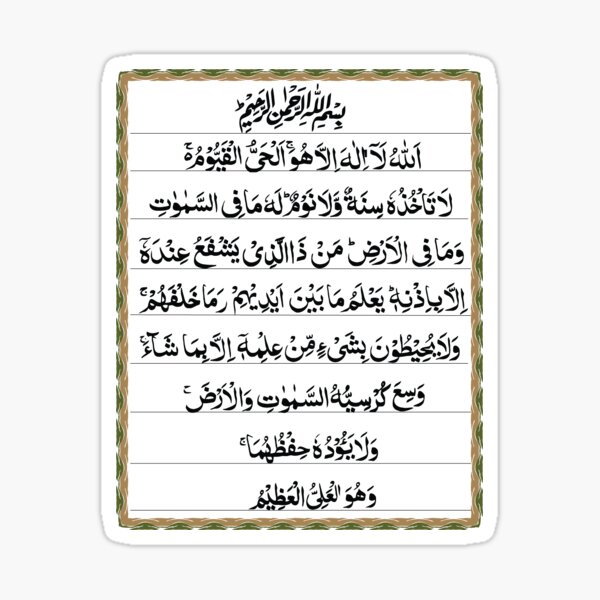 بِسْمِ اللهِ الرَّحْمٰنِ الرَّحِيْمِ ؕ
اَللهُ لَاۤ اِلٰهَ اِلَّا هُوَ ۚ اَلْحَیُّ الْقَيُّوْمُ ەۚ
لَا تَاْخُذُهٗ سِنَةٌ وَّلَا نَوْمٌ ؕ لَهٗ مَا فِی السَّمٰوٰتِ
وَمَا فِی الْاَرْضِ ؕ مَنْ ذَا الَّذِیْ يَشْفَعُ عِنْدَهٗۤ
اِلَّا بِاِذْنِهٖ ؕ يَعْلَمُ مَا بَيْنَ اَيْدِيْهِمْ رَمَا خَلْفَهُمْ ۚ
وَلَا يُحِيْطُوْنَ بِشَیْءٍ مِّنْ عِلْمِهٖۤ اِلَّا بِمَا شَآءَ ۚ
وَسِعَ كُرْسِيُّهُ السَّمٰوٰتِ وَالْاَرْضَ ۚ
وَلَا يَـُٔوْدُهٗ حِفْظُهُمَا ۚ
وَهُوَ الْعَلِیُّ الْعَظِيْمُ